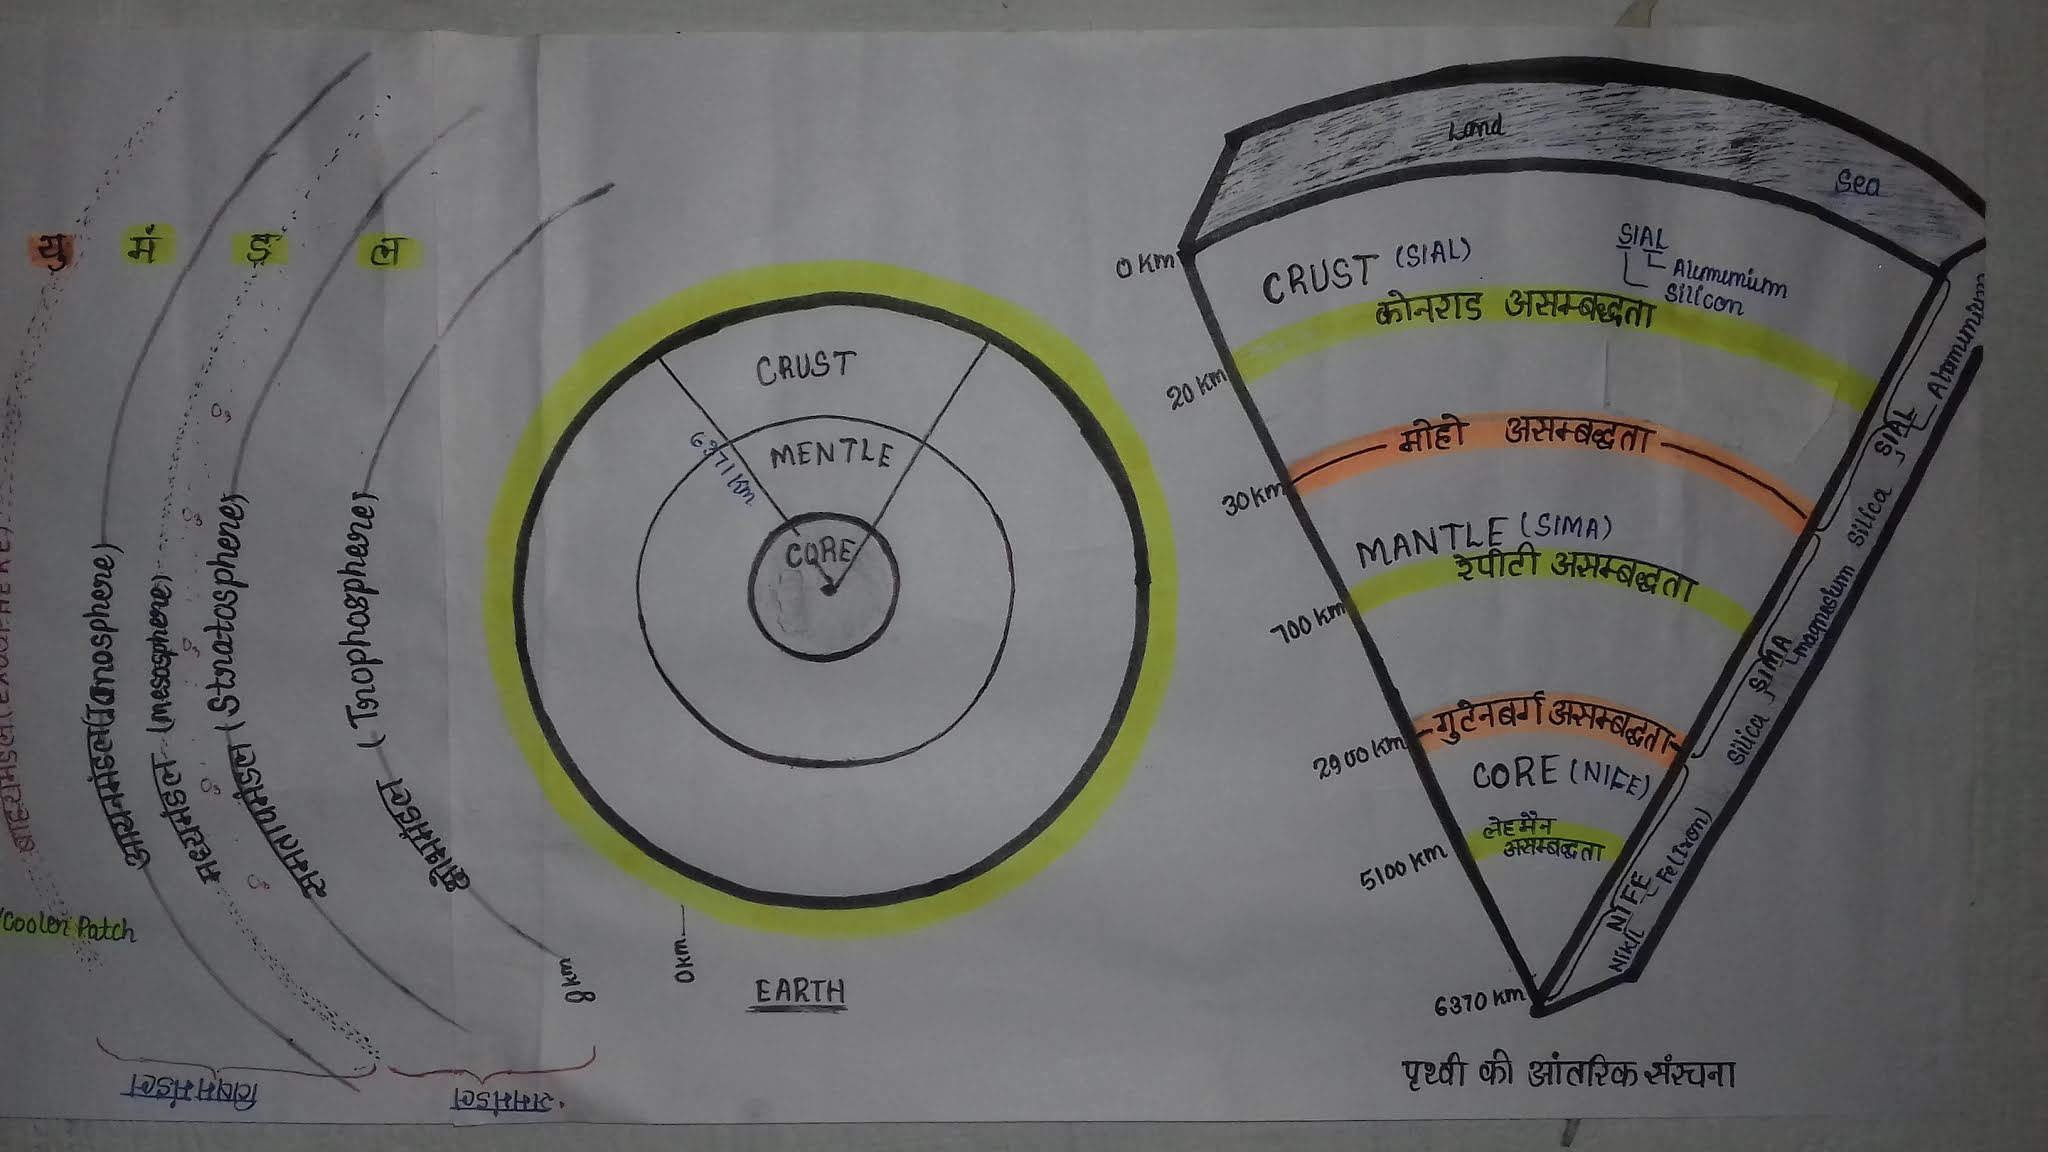 यु मं ड ल
बाह्यमंडल (EXOSPHERE)
आयनमंडल (Ionosphere)
मध्यमंडल (mesosphere)
समतापमंडल (Stratosphere)
क्षोभमंडल (Troposphere)
O3
O3
O3
O3
O3
Cooler Patch
8 km
विषममंडल
सममंडल
CRUST
MENTLE
6371 km
CORE
0 km
EARTH
Land
Sea
0 Km
CRUST (SIAL)
SIAL
Alumumium
Silicon
कोनराड असम्बद्धता
20 Km
मोहो असम्बद्धता
30 Km
MANTLE (SIMA)
रेपीटी असम्बद्धता
700 Km
गुटेनबर्ग असम्बद्धता
2900 Km
CORE (NIFE)
लेहमैन
असम्बद्धता
5100 Km
6370 Km
SIAL
Silica
SIMA
magnesium
Silica
NIFE
Fe(Iron)
पृथ्वी की आंतरिक संरचना